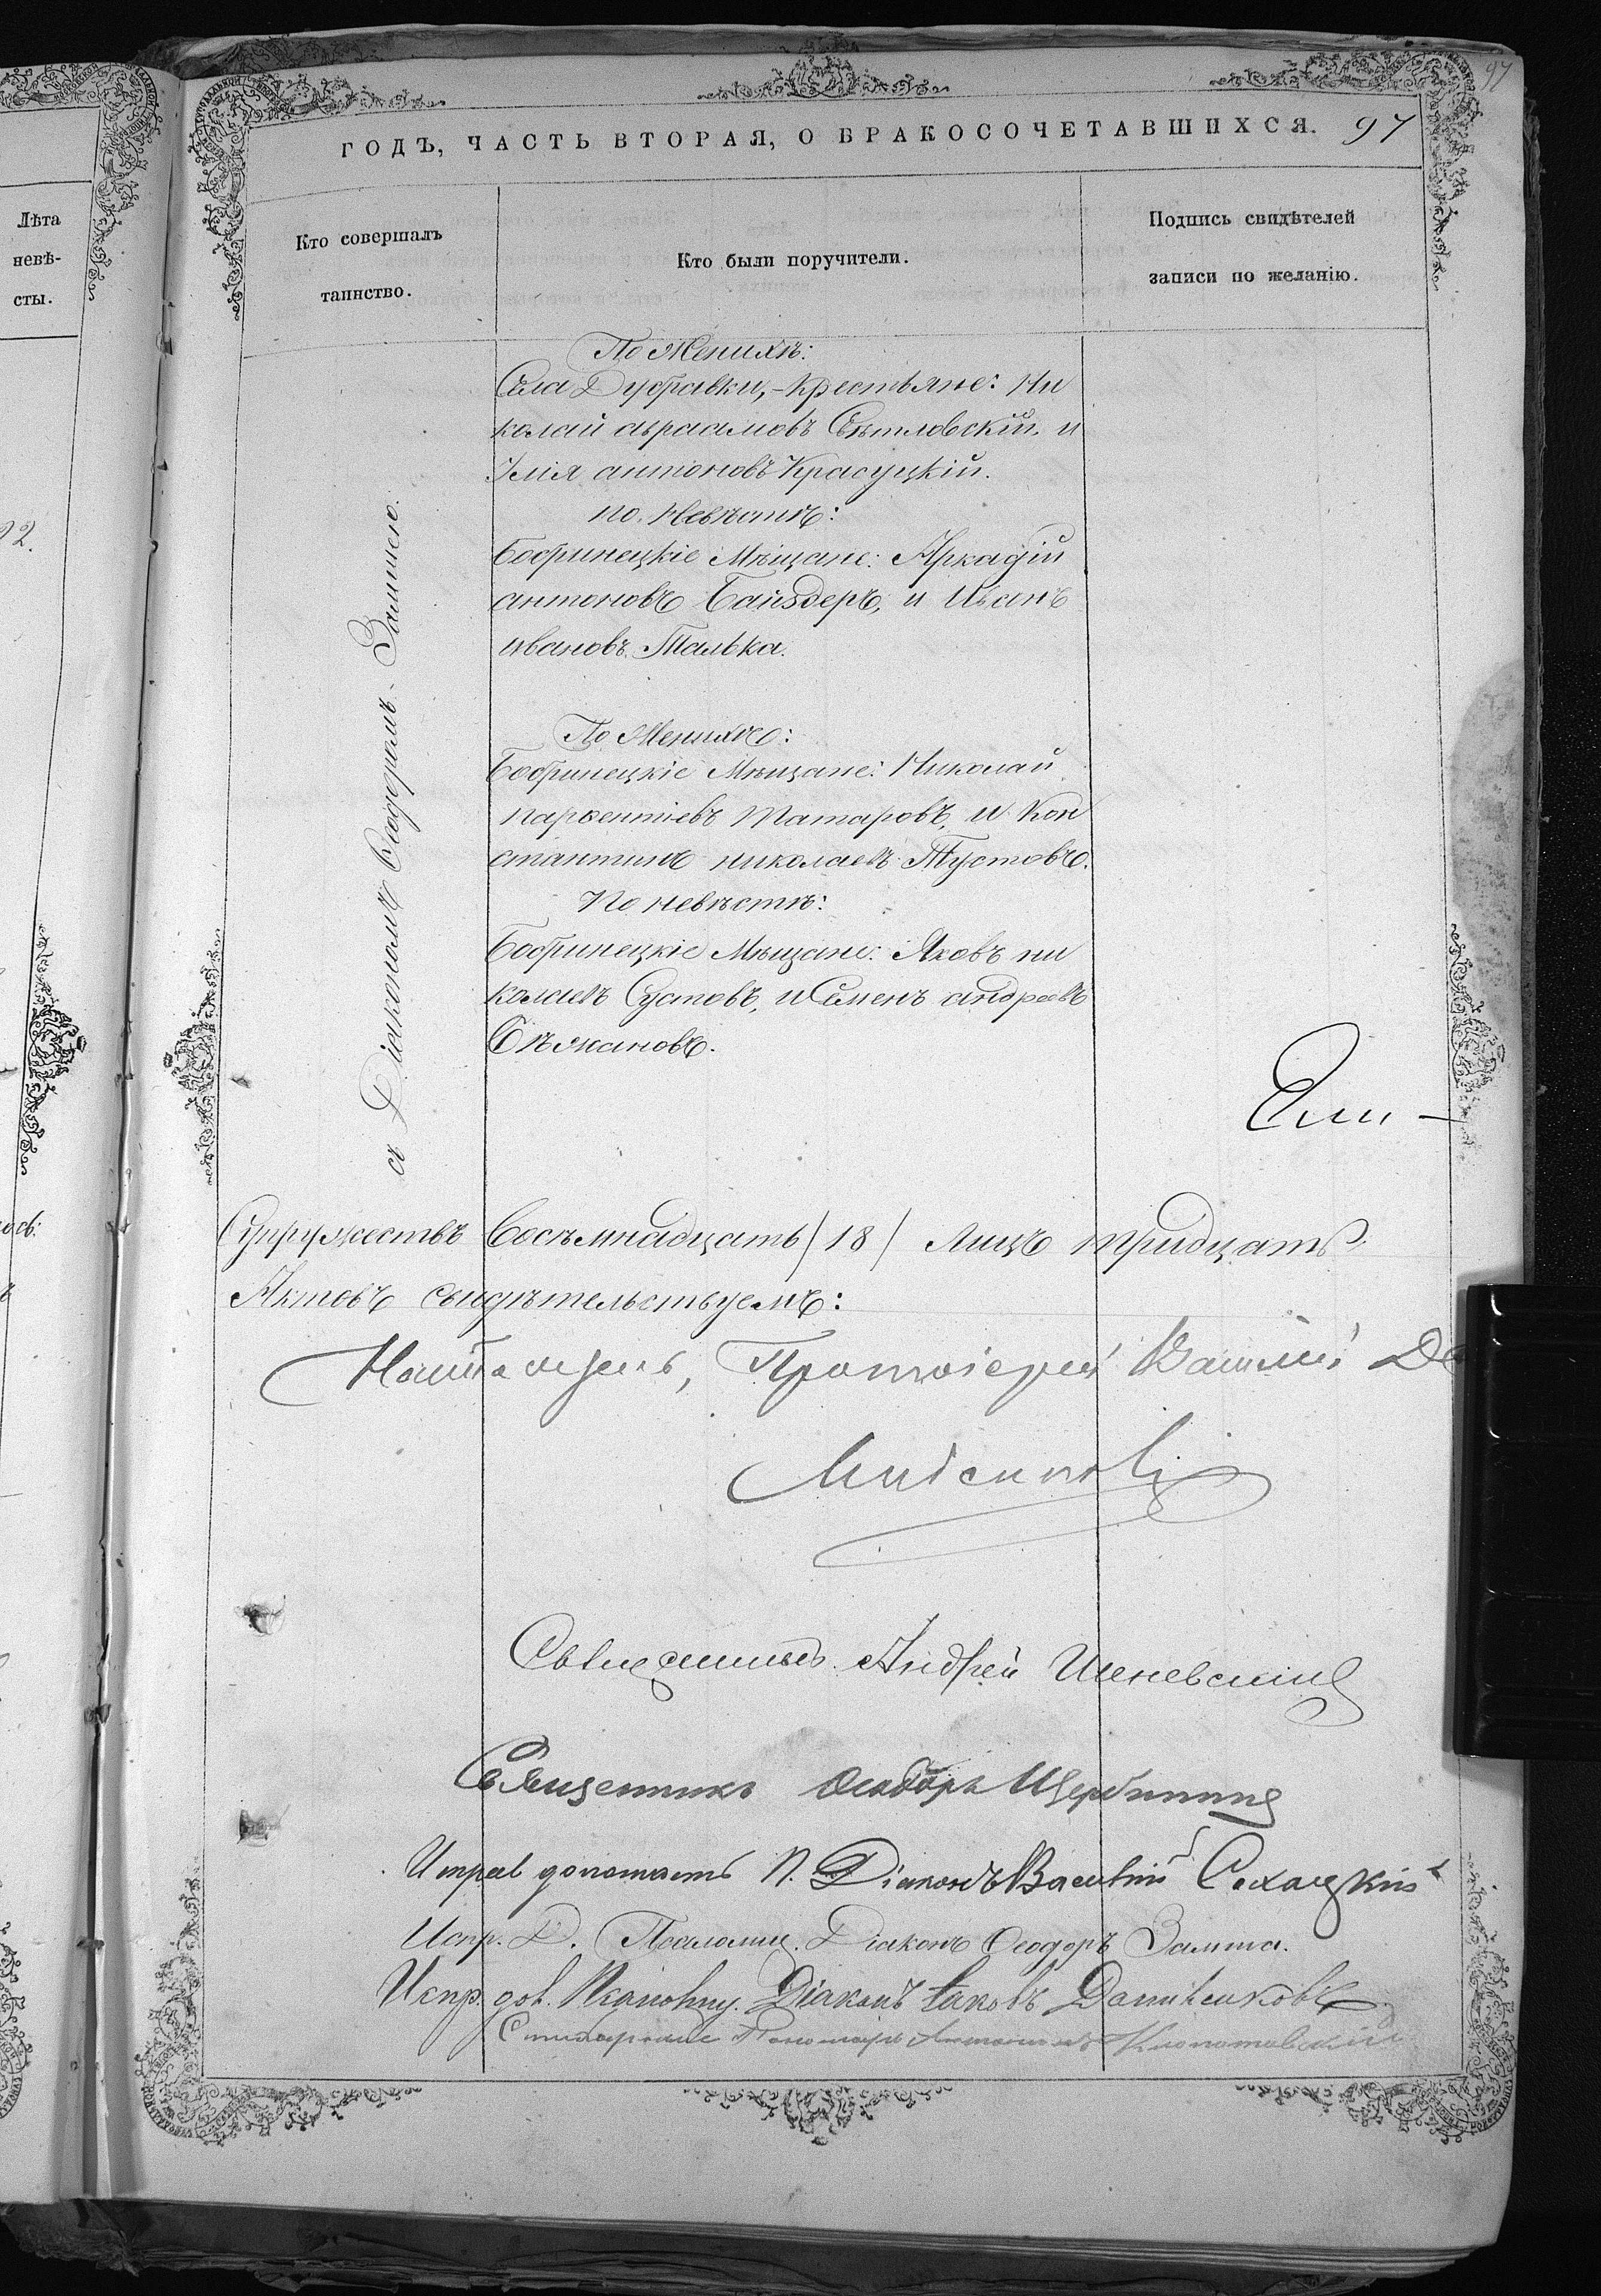 97
ГОДЪ, ЧАСТЬ ВТОРАЯ, О БРАКОСОЧЕТАВШИХСЯ. 97
Лѣта
невѣ-
сты.
Кто совершалъ
таинство.
Кто были поручители.
Подпись свидѣтелей
записи по желанію.
22.
съ Діакономъ Ѳеодоромъ Замшею.
По Женихѣ:
Села Дубравки, Крестьяне: Ни
колай авраамовъ Свѣтловскій, и
Илія антоновъ Красуцкій.
по Невѣстѣ:
Бобринецкіе Мѣщане: Аркадій
антоновъ Байздеръ, и Иванъ
ивановъТалька.
По Женихѣ:
Бобринецкіе Мѣщане: Николай
парѳентіевъ Татаровъ, и Кон
стантинъ николаевъ Тустовъ.
По невѣстѣ:
Бобринецкіе Мѣщане: Яковъ ни
колаевъ Сустовъ, и Семенъ андреевъ
Бѣжановъ.
Супружествъ Восѣмнадцать /18/ Лицъ тридцать
Актовъ свидѣтельствуемъ:
Настоятель, Протоіерей Василій
Священникъ Андрей
Священникъ Ѳеодоръ Щербина
Діаконъ Василій
Испр. Д. Псаломщ. Діаконъ Ѳеодоръ Замша.
Испр. дол. Псаломщ. Діаконъ Іаковъ Данилковъ
Пономарь Клопотовскій